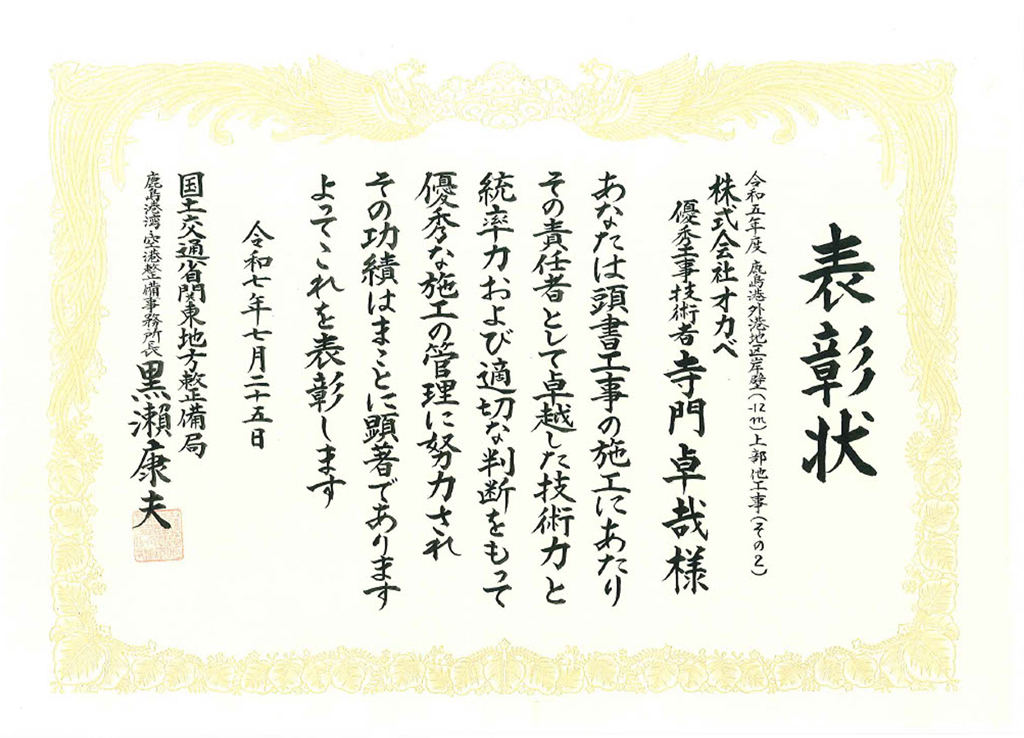 表彰状
令和五年度 鹿島港外港地区岸壁(-12m)上部他工事(その2)
株式会社オカベ
優秀工事技術者 寺門卓哉様
あなたは頭書工事の施工にあたり
その責任者として卓越した技術力と
統率力および適切な判断をもって
優秀な施工の管理に努力され
その功績はまことに顕著であります
よってこれを表彰します
令和七年七月二十五日
国土交通省関東地方整備局
鹿島港湾・空港整備事務所長 黒瀬康夫